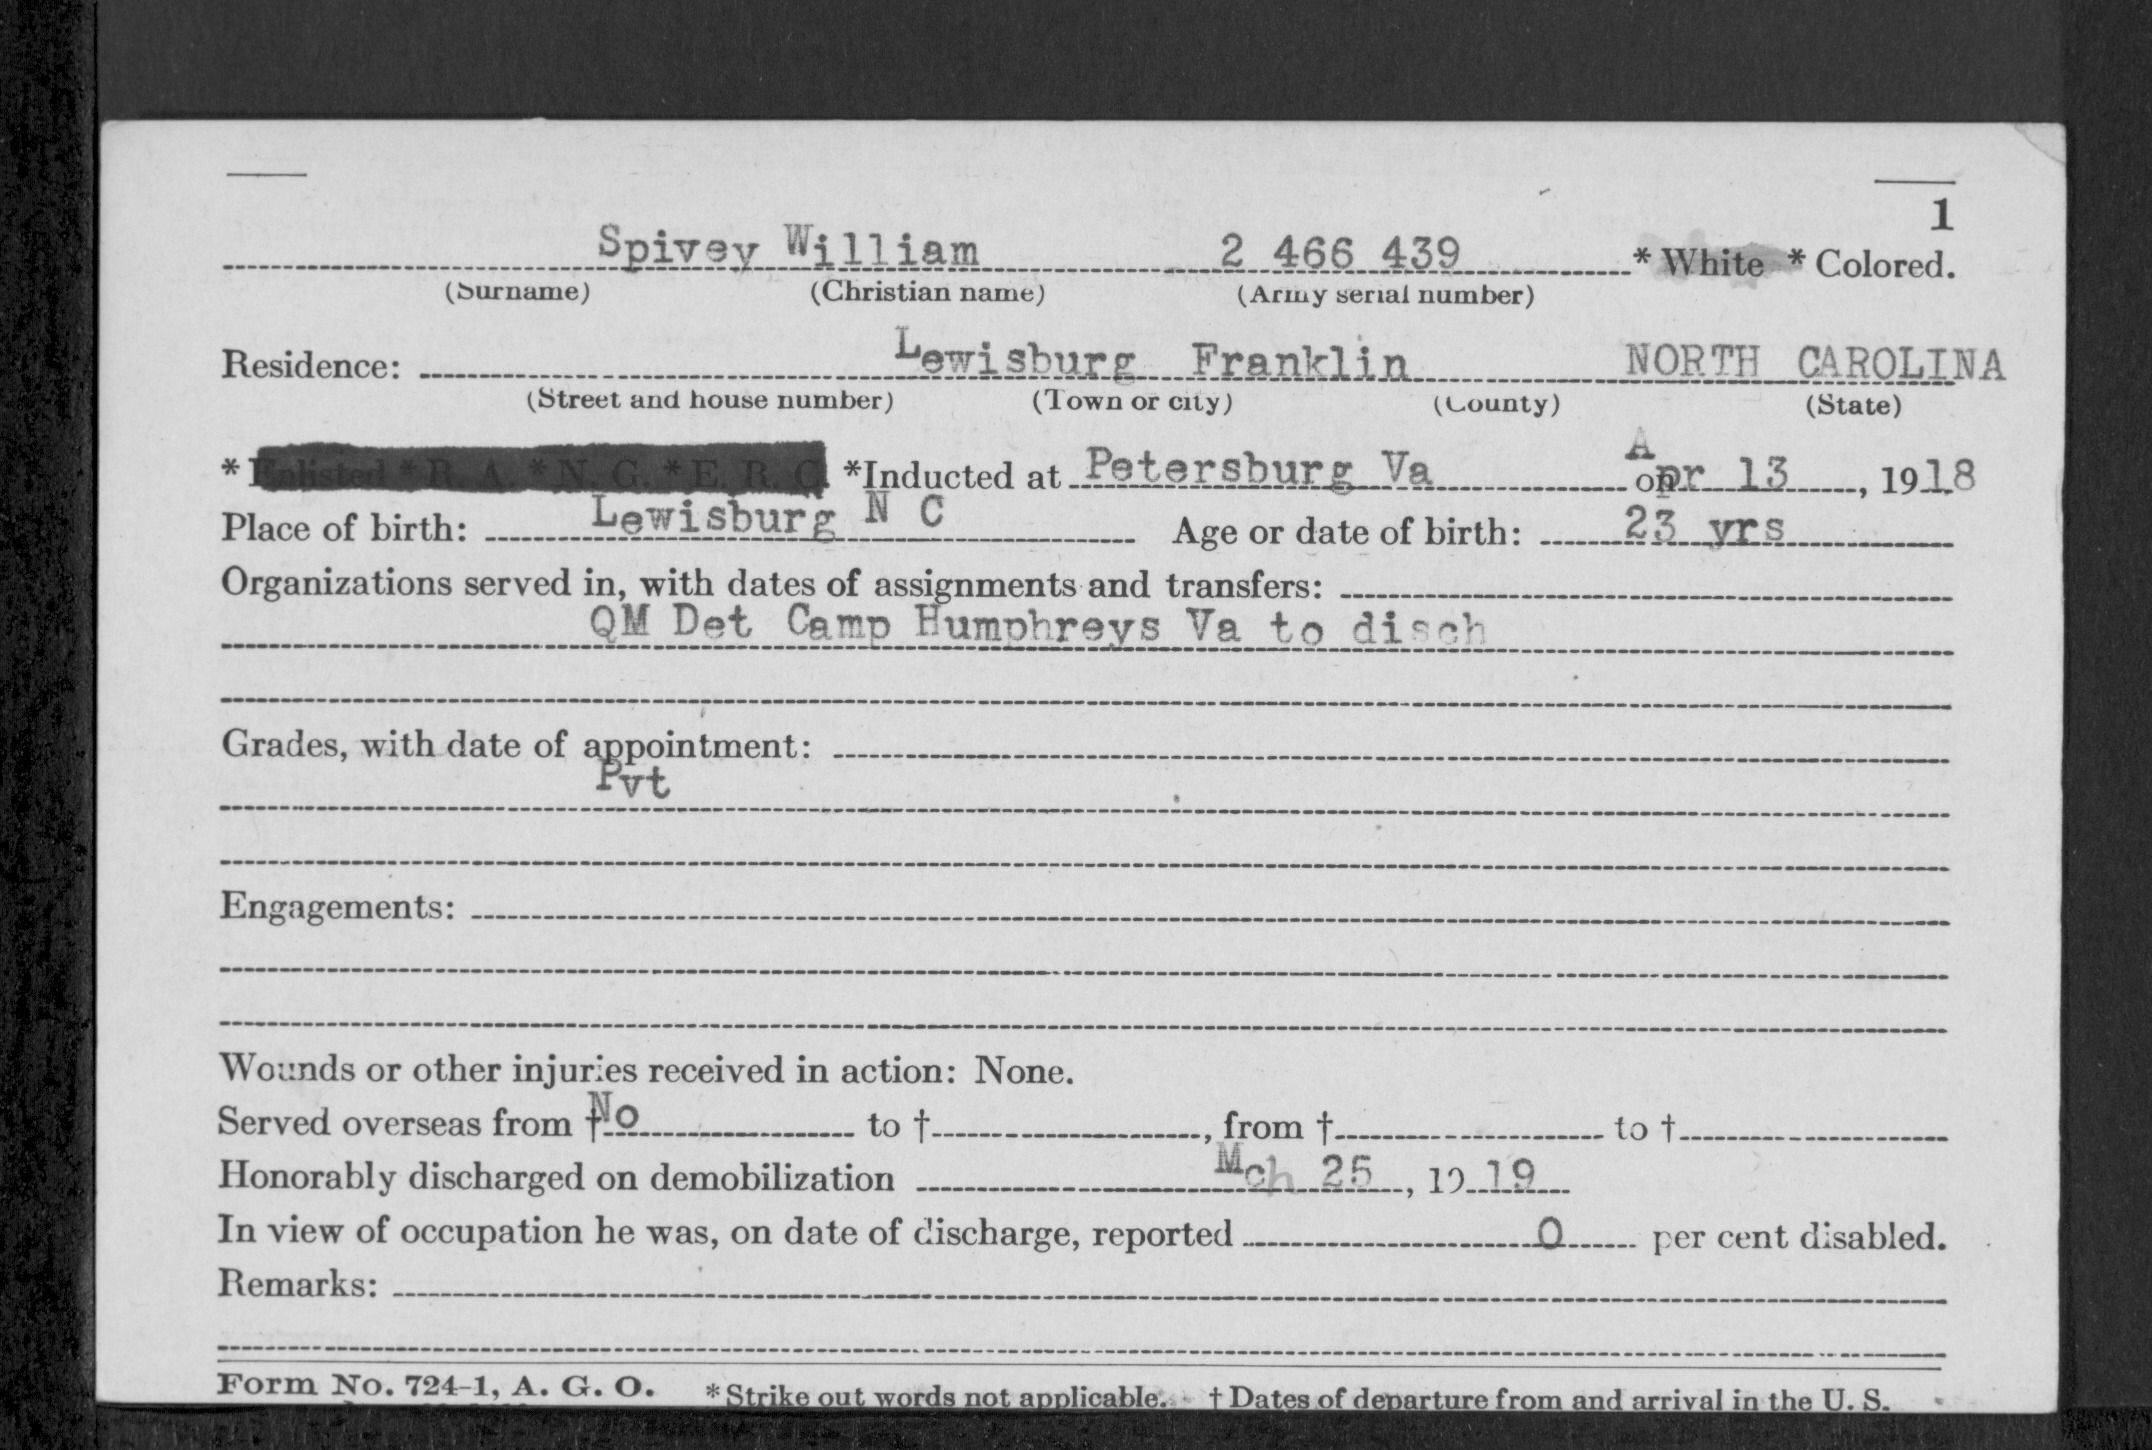 1
Spivey William 2 466 439 * White * Colored.
(Surname) (Christian name) (Army serial number)
Residence: Lewisburg Franklin NORTH CAROLINA
(Street and house number) (Town or city) (County) (State)
* Enlisted * R. A. * N. G. * E. R. C. *Inducted at Petersburg Va on Apr 13, 1918
Place of birth: Lewisburg N C Age or date of birth: 23 yrs
Organizations served in, with dates of assignments and transfers:
QM Det Camp Humphreys Va to disch
Grades, with date of appointment:
Pvt
Engagements:
Wounds or other injuries received in action: None.
Served overseas from † No to †, from † to †
Honorably discharged on demobilization Mch 25, 1919
In view of occupation he was, on date of discharge, reported 0 per cent disabled.
Remarks:
Form No. 724-1, A. G. O. * Strike out words not applicable. † Dates of departure from and arrival in the U. S.